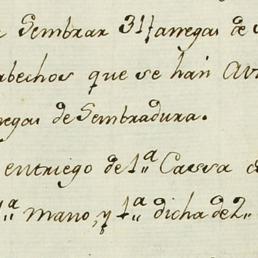 Sembrar 31 farregas de
abechos que se han
regas de Sembradura.
entriego de 1ª Casva
1ª mano, y 1ª dicha de 2